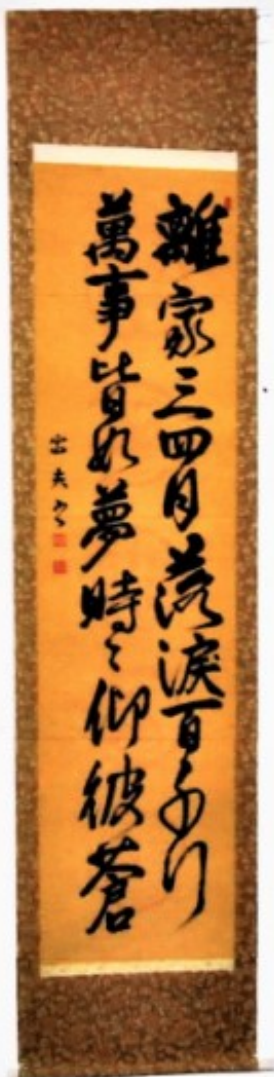 離家三四月落涙百千行
萬事皆如夢時々仰彼蒼